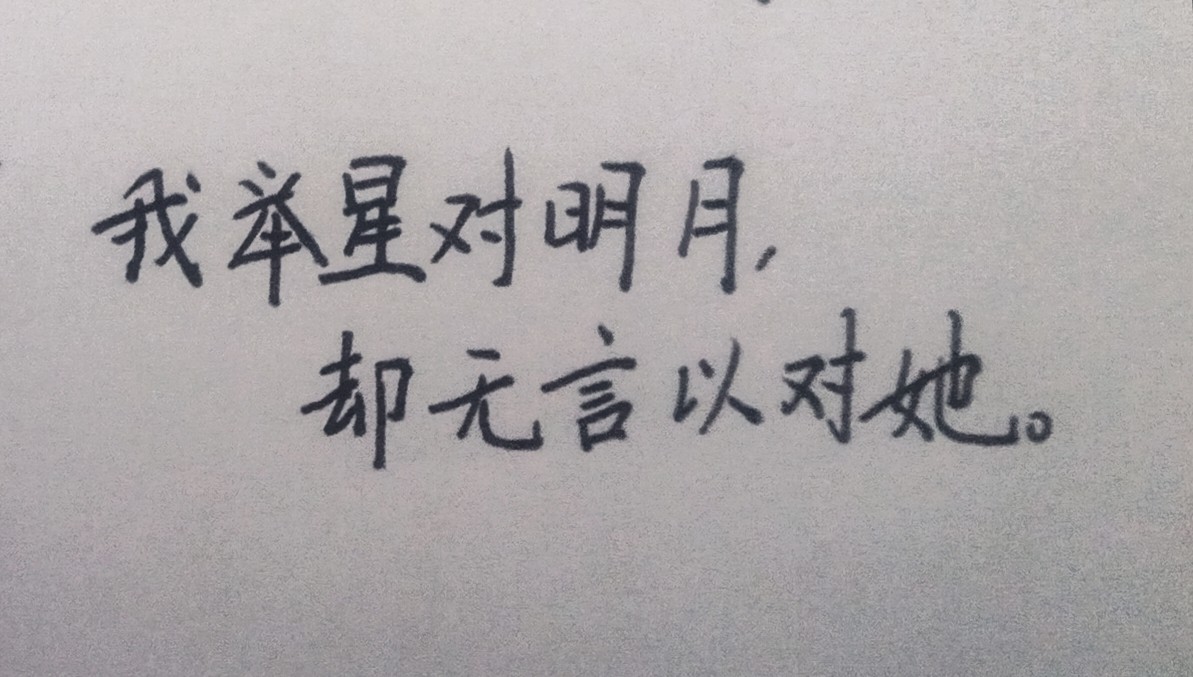 我举星对明月,
却无言以对她。